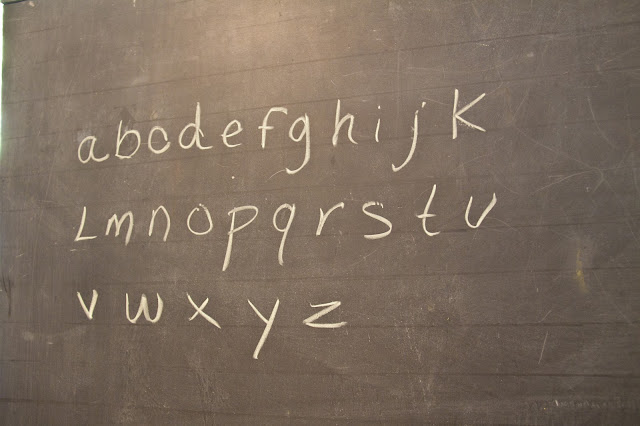 abcdefghijK
Lmnopqrstu
vwxyz